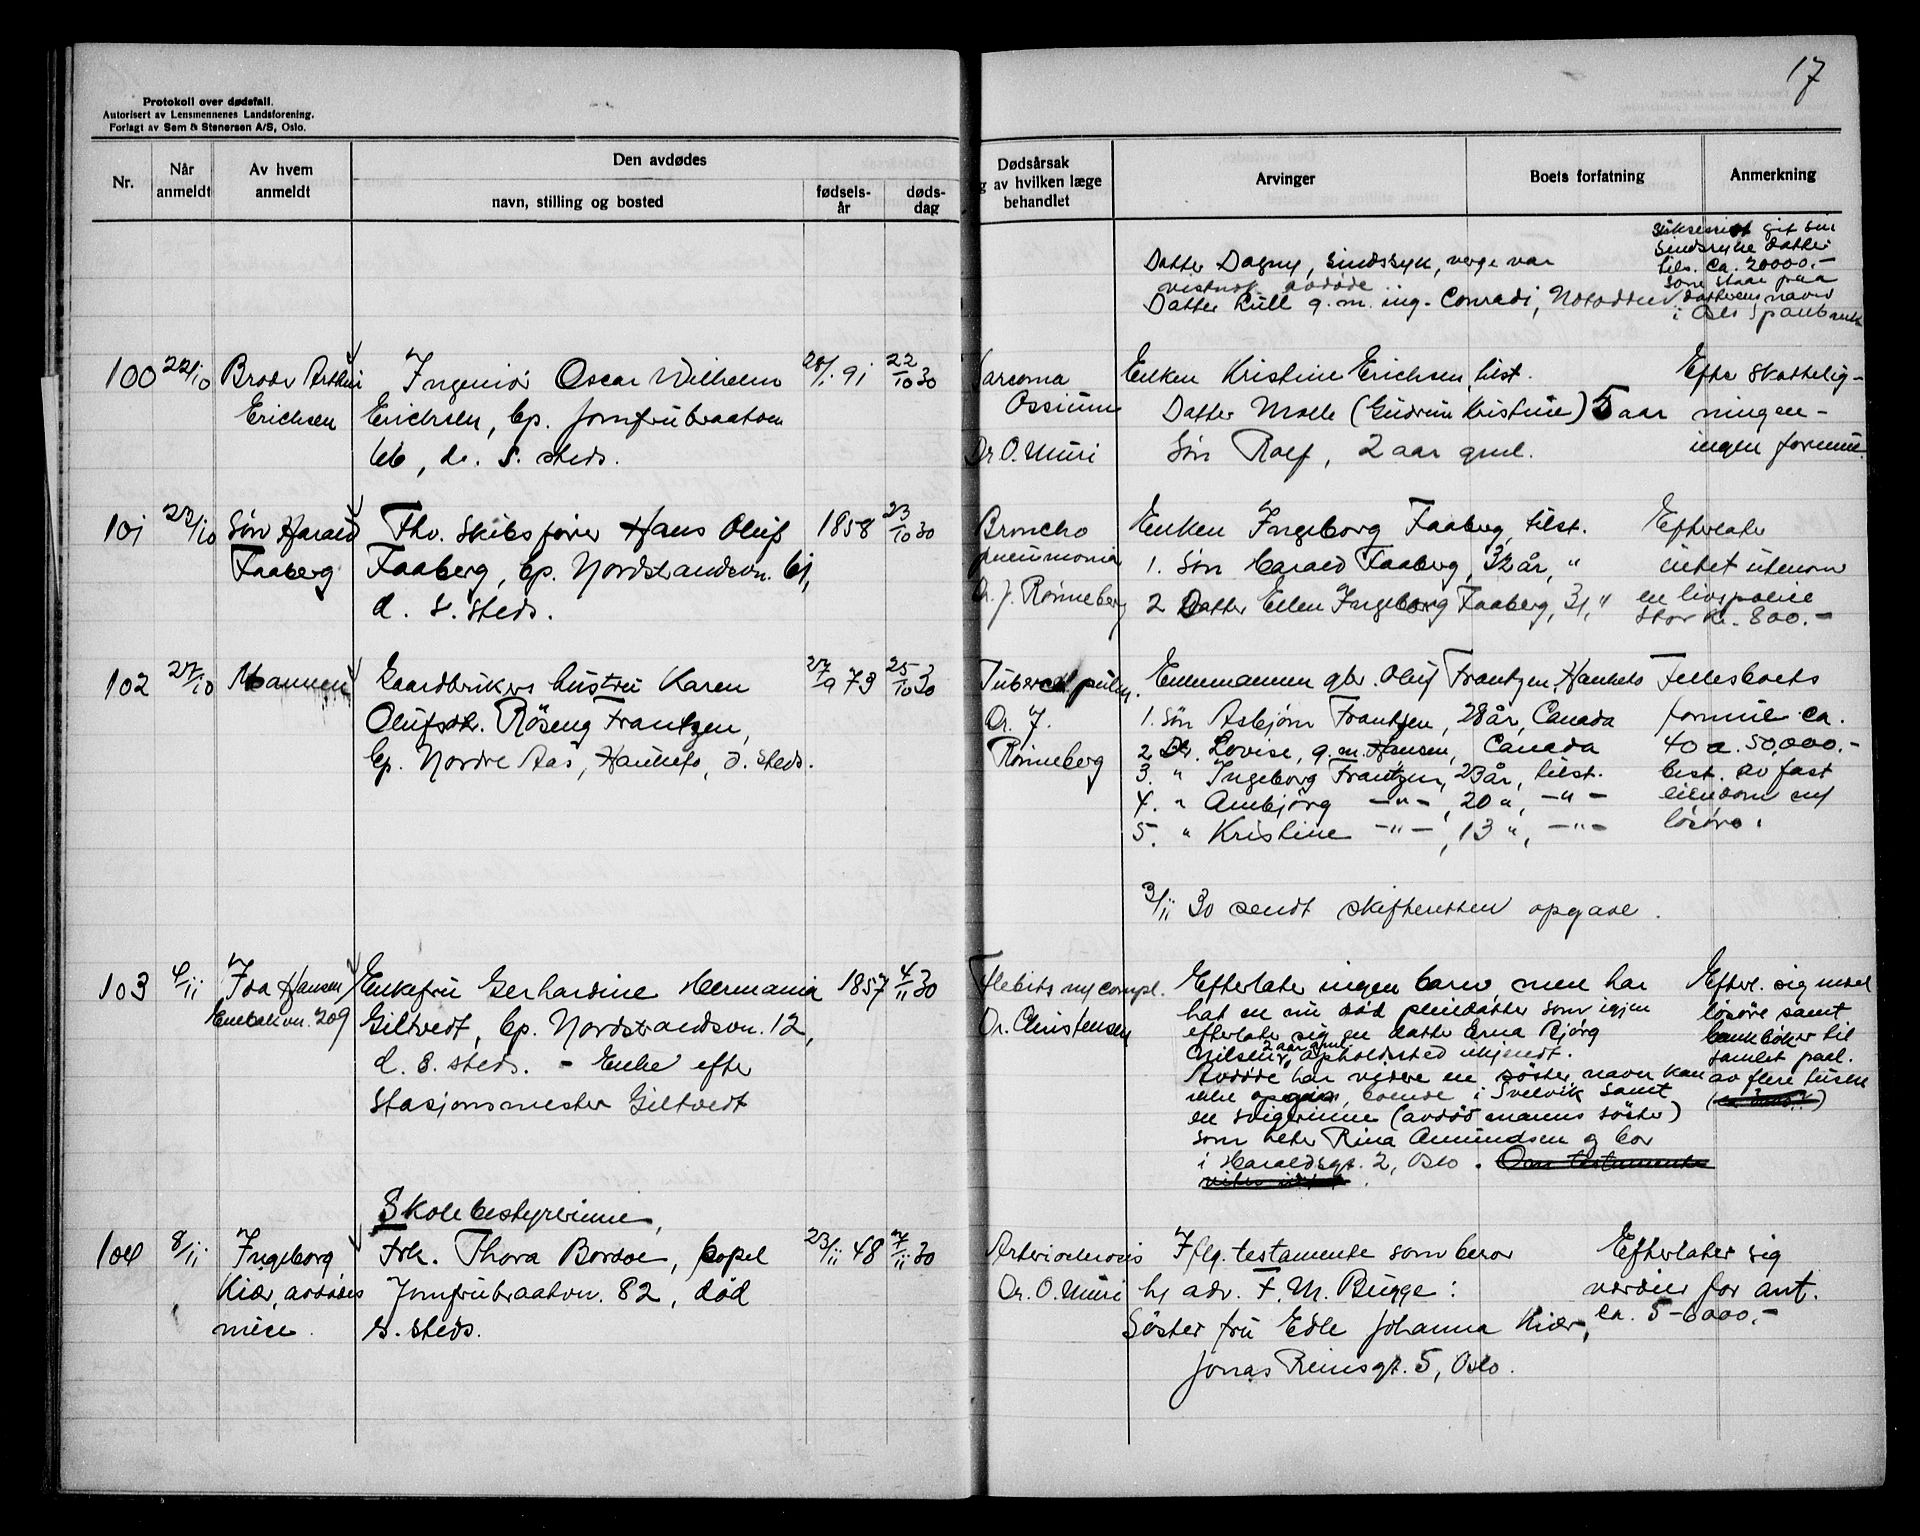 17
Protokoll over dødsfall.
Autorisert av Lensmennenes Landsforening.
Forlagt av Sem & Stenersen A/S, Oslo.
Nr.
Når anmeldt
Av hvem anmeldt
Den avdødes
navn, stilling og bosted
fødsels-år
døds-dag
Dødsårsak
g av hvilken læge
behandlet
Arvinger
Boets forfatning
Anmerkning
Datter Dagny, sindssyk, verge var
vistnok avdøde
Datter Lull g.m. ing. Conradi, Notodden
git sin
sindssyke datter
ca. 20000.-
som staar paa
datterens navn
i Oslo Sparebank
100
22/10
Broder Arthur
Erichsen
Ingeniør Oscar Wilhelm
Erichsen, bp. Jomfrubraatven
66, d. s. steds.
28/1 91
22/10 30
Sarcoma
Ossium
Dr O. Muri
Enken Kristine Erichsen, tilst.
Datter Molle (Gudrun Kristine) 5 aar
Søn Rolf, 2 aar gml.
Efter skattelig-
ningen -
ingen formue.
101
23/10
Søn Harald
Faaberg
Fhv. Skibsfører Hans Oluf
Faaberg, bp. Nordstrandsvn. 61,
d. s. steds.
1858
23/10 30
Broncho
pneumonia
Dr. J. Rønneberg
Enken Ingeborg Faaberg, tilst.
1. Søn Harald Faaberg, 32 år, "
2 Datter Ellen Ingeborg Faaberg, 31, "
Efterlater
intet utenom
en livspolise
stor kr. 800.-
102
27/10
Mannen
Gaardbrukers hustru Karen
Olufsdtr. Røseng Frantzen,
bp. Nordre Aas, Hauketo, d. steds.
27/9 73
25/10 30
Tubercul. pulm.
Dr. J.
Rønneberg
Enkemannen gbr. Oluf Frantzen, Hauketo
1. Søn Asbjørn Frantzen, 28 år, Canada
2. Dtr. Lovise, g.m. Hansen, Canada
3. " Ingeborg Frantzen, 23 år, tilst.
4. " Annbjørg -"-, 20 ", -"-
5. " Kristine -"-, 13 ", -"-
3/11 30 sendt skifteretten opgave.
Fellesboets
formue ca.
40 a. 50,000.-
best. av fast
eiendom og
løsøre.
103
4/11
Ida Hansen
Enebakvn. 209
Enkefru Gerhardine Hermania
Giltvedt, bp. Nordstrandsvn. 12,
d. s. steds. - Enke efter
Stasjonsmester Giltvedt
1857
4/11 30
Flebits m/ compl.
Dr. Christensen
Efterlater ingen barn men har
hat en nu død pleiedatter som igjen
efterlater sig en datter Erna Bjørg
Nilsen, 2 aar gml. opholdssted ukjendt.
Avdøde har videre en søster, navn kan
ikke opgies, boende i Svelvik samt
en svigerinne (avdød manns søster)
som heter Rina Amundsen og bor
i Haraldsgt. 2, Oslo. Om testamente
Efterl. sig møbel
løsøre samt
bankbøker til
samlet paal.
av flere tusen
104
8/11
Ingeborg
Kiær, avdødes
niese.
Skolebestyrerinne,
Frk. Thora Bordoe, bopel
Jomfrubraatvn. 82, død
s. steds.
23/11 48
7/11 30
Arteriosclerosis
Dr. O. Muri
Iflg. testamente som beror
hj adv. F. M. Bugge:
Søster fru Edle Johanna Kiær,
Jonas Reinsgt. 5, Oslo.
Efterlater sig
verdier for ant.
ca. 5-6000.-